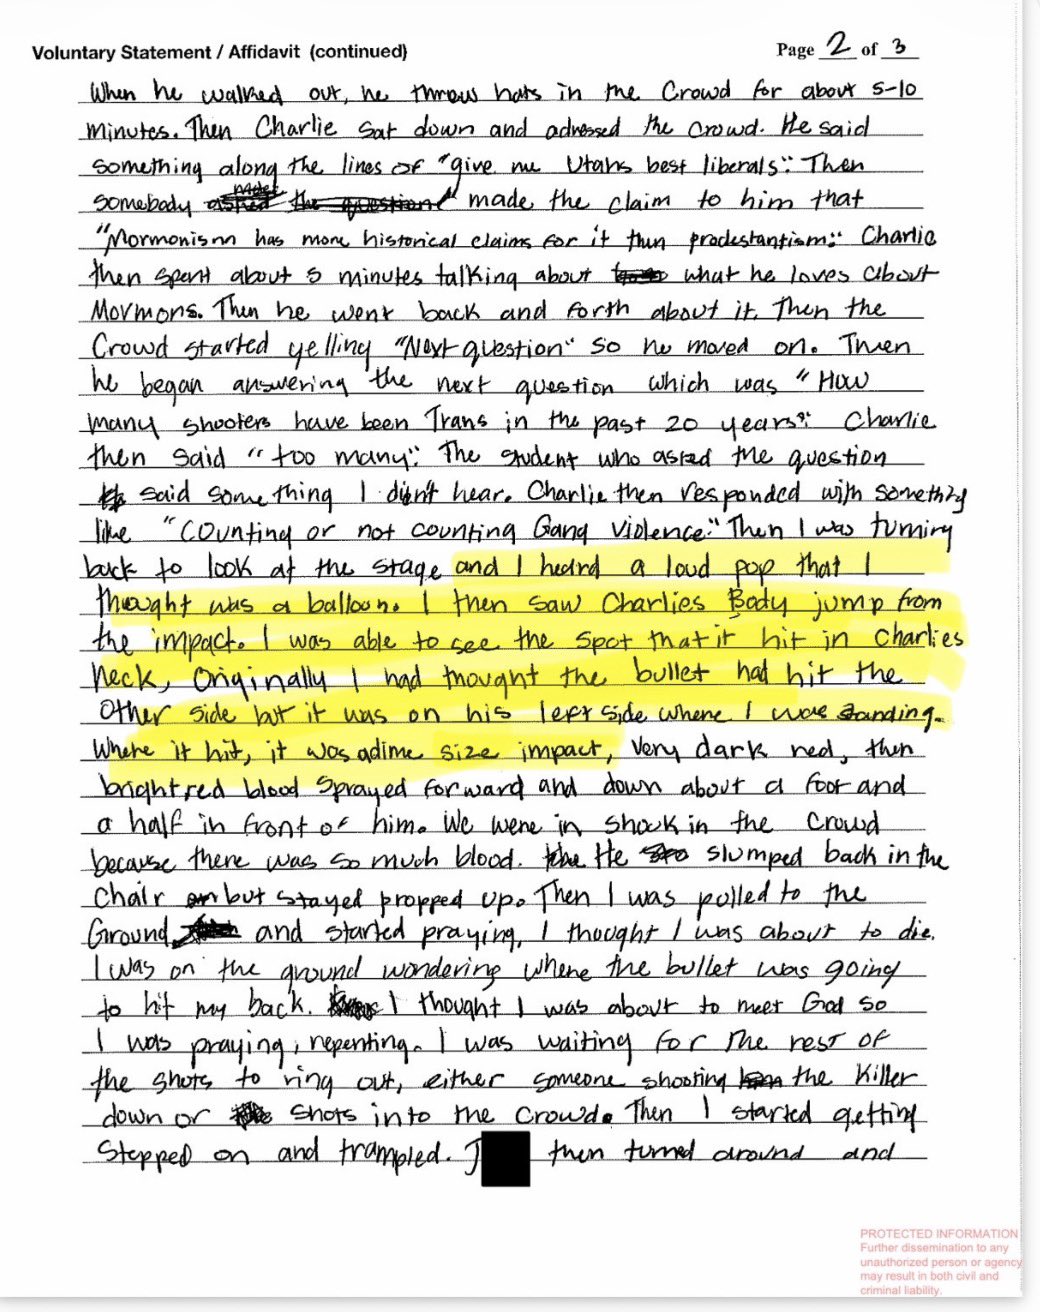 Voluntary Statement / Affidavit (continued)
Page 2 of 3
When he walked out, he threw hats in the Crowd for about 5-10
minutes. Then Charlie sat down and adressed the crowd. He said
something along the lines of "give me Utahs best liberals". Then
somebody made the claim to him that
"Mormonism has more historical claims for it than prodestantism". Charlie
then spent about 5 minutes talking about what he loves about
Mormons. Then he went back and forth about it. Then the
Crowd started yelling "Next question" so he moved on. Then
he began answering the next question which was "How
many shooters have been Trans in the past 20 years?" Charlie
then said "too many". The student who asked the question
said something I didn't hear. Charlie then responded with something
like "Counting or not counting Gang violence." Then I was turning
back to look at the stage and I heard a loud pop that I
thought was a balloon. I then saw Charlies Body jump from
the impact. I was able to see the spot that it hit in Charlies
Neck, Originally I had thought the bullet had hit the
other side but it was on his left side where I was standing.
Where it hit, it was a dime size impact, Very dark red, then
bright red blood sprayed forward and down about a foot and
a half in front of him. We were in shock in the Crowd
because there was so much blood. He slumped back in the
Chair but stayed propped up. Then I was pulled to the
Ground and started praying, I thought I was about to die.
I was on the ground wondering where the bullet was going
to hit my back. I thought I was about to meet God so
I was praying, repenting. I was waiting for the rest of
the shots to ring out, either someone shooting the Killer
down or shots into the crowd. Then I started getting
Stepped on and trampled. J then turned around and
PROTECTED INFORMATION
Further dissemination to any
unauthorized person or agency
may result in both civil and
criminal liability.